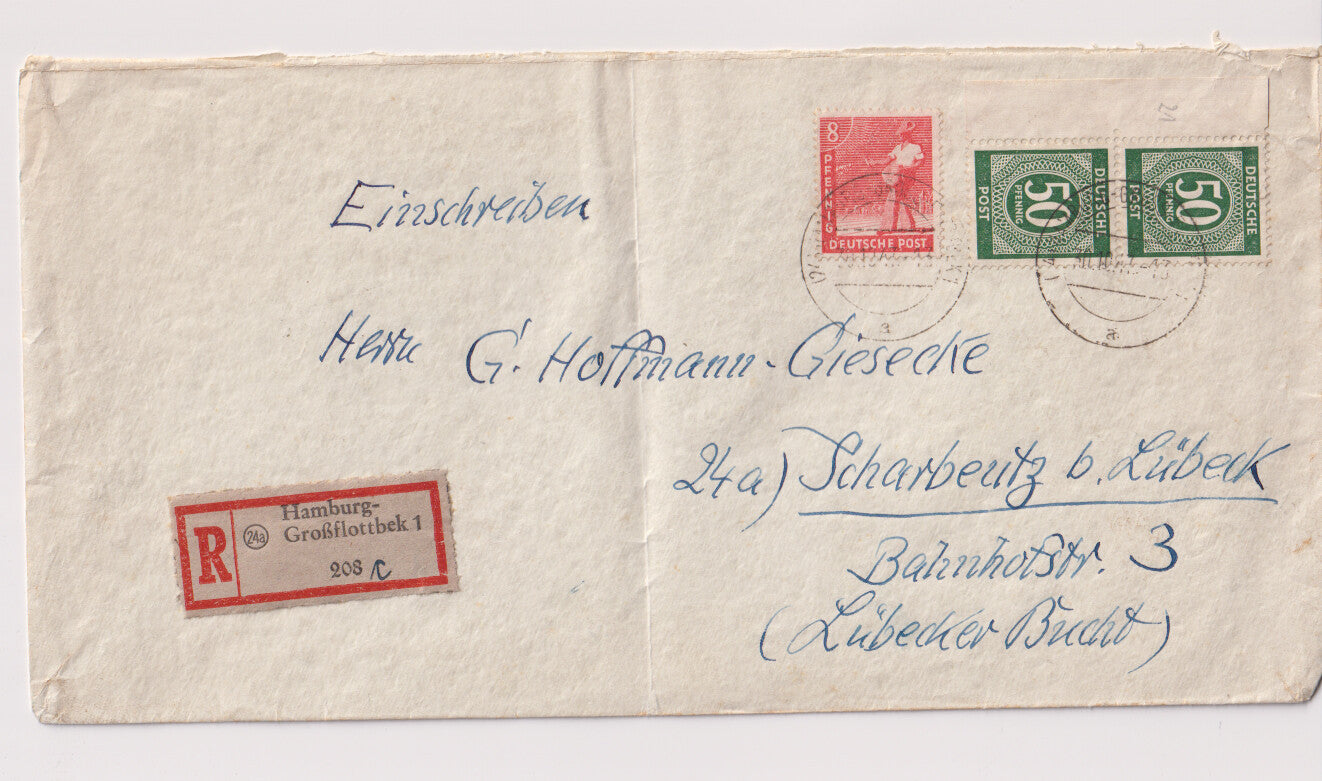 Einschreiben
8
PFENNIG
DEUTSCHE POST
21
DEUTSCHE
50
PFENNIG
POST
DEUTSCHE
50
PFENNIG
POST
a
a
Herrn G. Hoffmann-Giesecke
24a) Scharbeutz b. Lübeck
Bahnhofstr. 3
(Lübecker Bucht)
R
24a
Hamburg-
Großflottbek 1
208 c